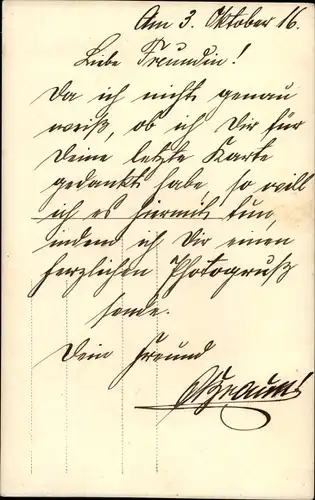 Am 3. Oktober 16.
Liebe Freundin!
Da ich nicht genau
weiß, ob ich Dir für
Deine letzte Karte
gedankt habe, so will
ich es hiermit tun,
indem ich Dir einen
herzlichen Photogruß
sende.
Dein Freund